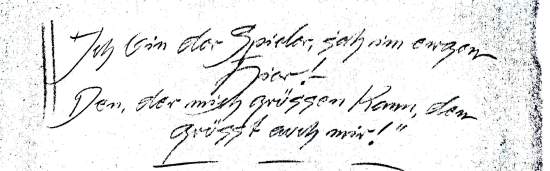 Ich bin der Spieler, sah im ewgen
Hier!
Den, der mich grüssen kann, den
grüsst auch mir!"